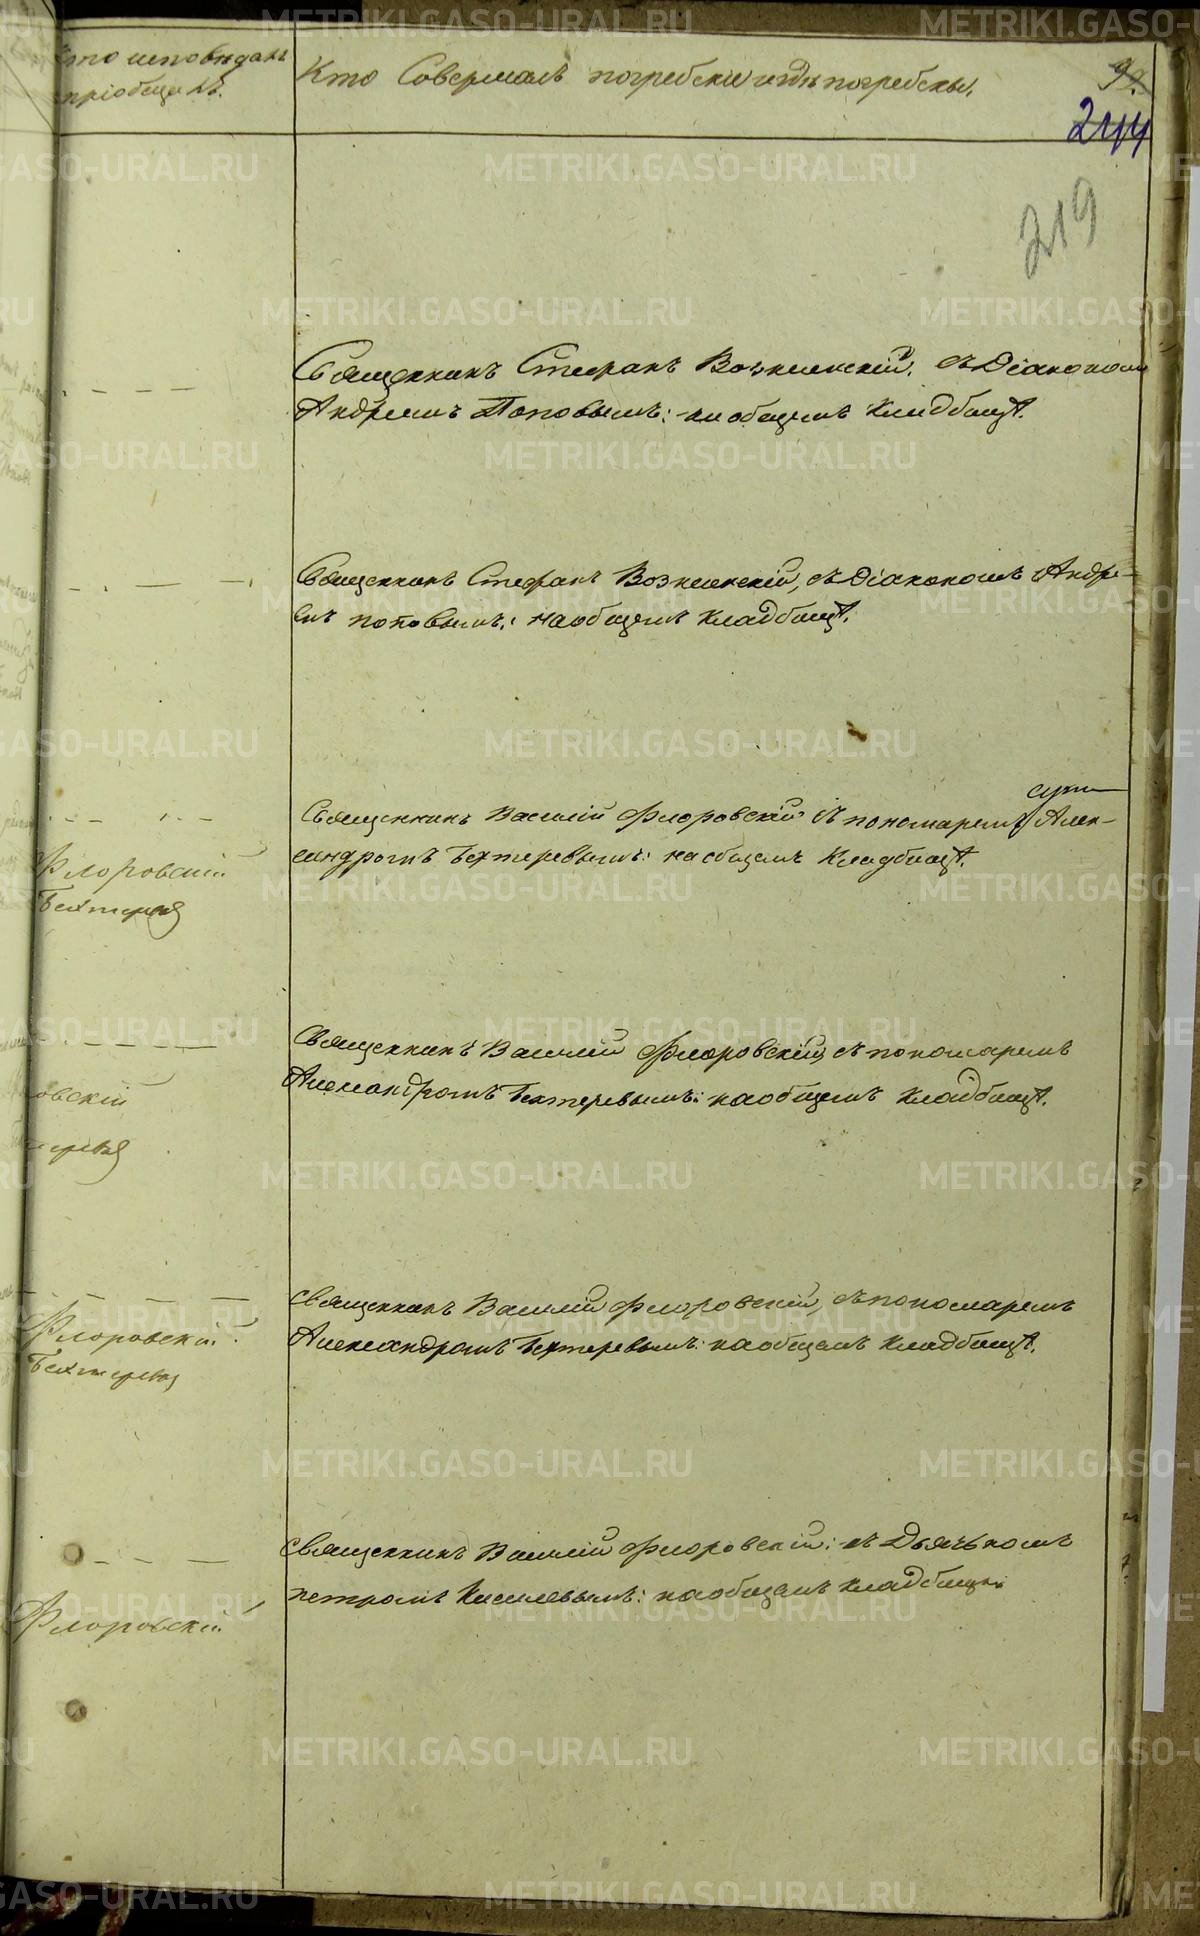 Кто исповѣдалъ
пріобщалъ.
Кто Совершалъ погребеніе игдѣ погребены.
99.
244
219
Священникъ Стефанъ Вознесенскій, съ Діакономъ
Андреемъ Поповымъ: на общемъ Кладбищѣ.
Священникъ Стефанъ Вознесенскій, съ Діакономъ Андре-
емъ поповымъ: на общемъ Кладбищѣ.
Священникъ Василій Флоровскій съ пономаремъ Алек-
сандромъ Бехтеревымъ: на общемъ Кладбищѣ.
Флоровскій
Бехтерева
Священникъ Василій Флоровскій, съ пономаремъ
Александромъ Бехтеревымъ: на общемъ кладбищѣ.
овскій
терева
Священникъ Василій Флоровскій, съ пономаремъ
Александромъ Бехтеревымъ: на общемъ кладбищѣ.
Флоровскій
Бехтерева
Священникъ Василій Флоровскій: съ Дьячькомъ
петромъ Киселевымъ: на общемъ кладбищѣ
Флоровскій
METRIKI.GASO-URAL.RU